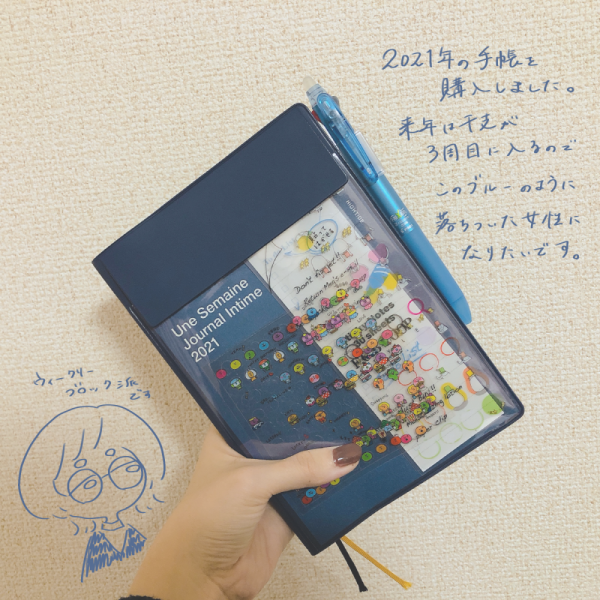 2021年の手帳を
購入しました。
来年は干支が
3周目に入るので
このブルーのように
落ちついた女性に
なりたいです。
Une Semaine
Journal Intime
2021
Don't Forget!!
paper clip
ウィークリー
ブロック派
です